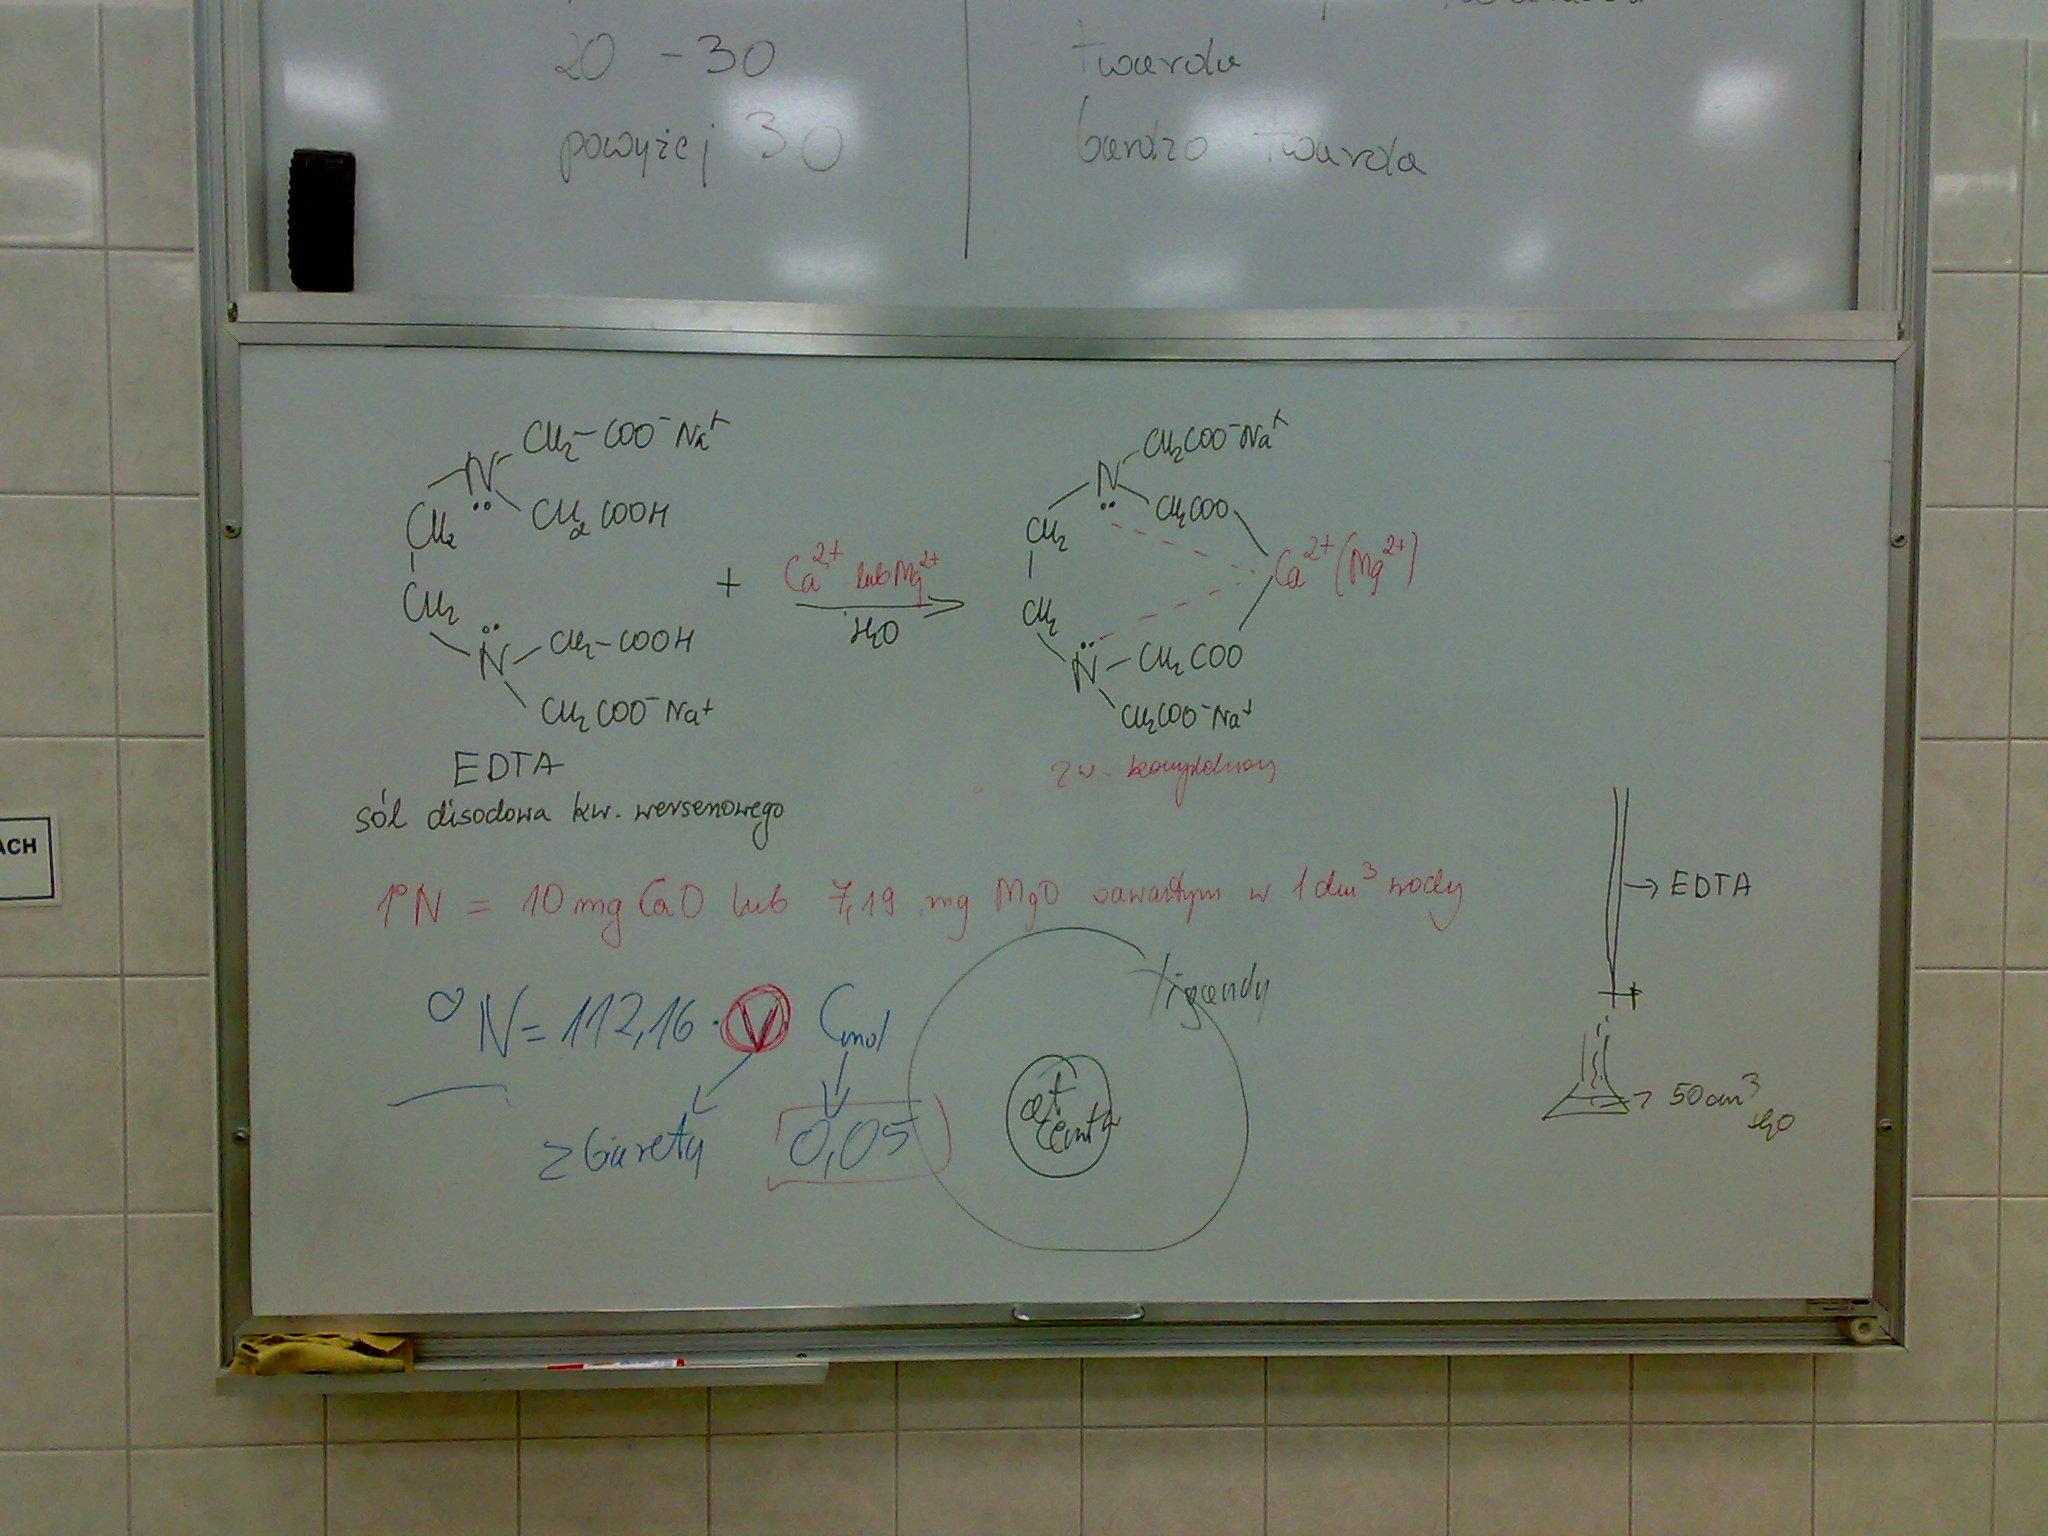 20 - 30 twarda
powyżej 30 bardzo twarda
CH2-COO⁻Na⁺
N
CH2COOH
CH2
CH2
N
CH2-COOH
CH2COO⁻Na⁺
EDTA
sól disodowa kw. wersenowego
+ Ca²⁺ lub Mg²⁺
H2O
CH2COO⁻Na⁺
N
CH2COO
CH2
Ca²⁺ (Mg²⁺)
CH2
N CH2COO
CH2COO⁻Na⁺
zw. kompleksowy
ACH
1°N = 10 mg CaO lub 7,19 mg MgO zawartym w 1 dm³ wody
°N = 112,16 · V Cmol
z biurety 0,05
ligandy
at
centr
EDTA
50 cm³
H2O